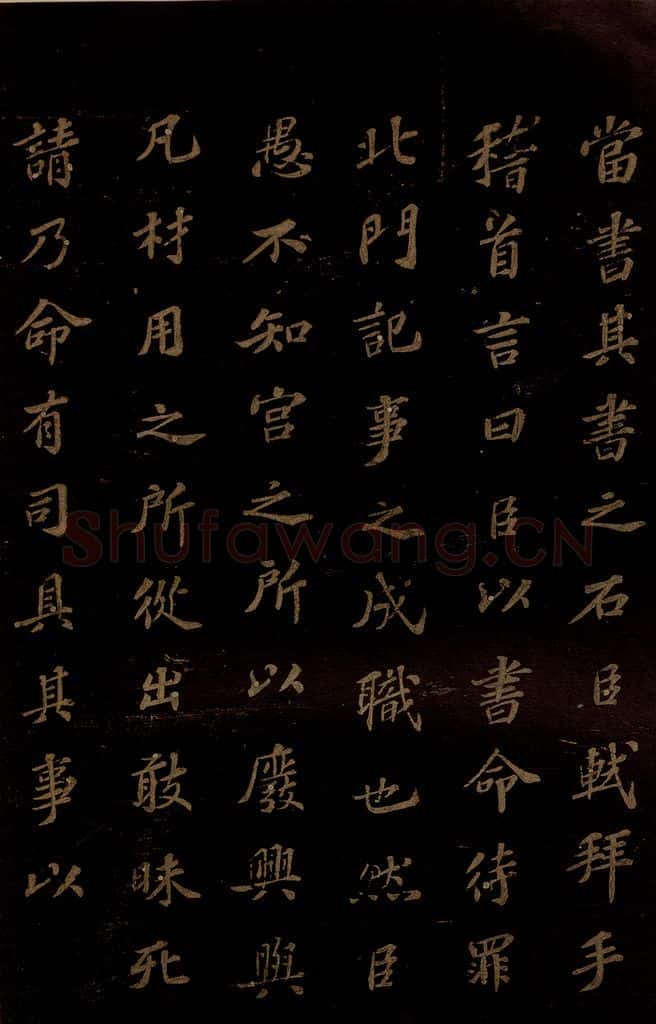 當書其書之石臣軾拜手
稽首言曰臣以書命待罪
北門記事之成職也然臣
愚不知宮之所以廢興與
凡材用之所從出敢昧死
請乃命有司具其事以
Shufawang.CN